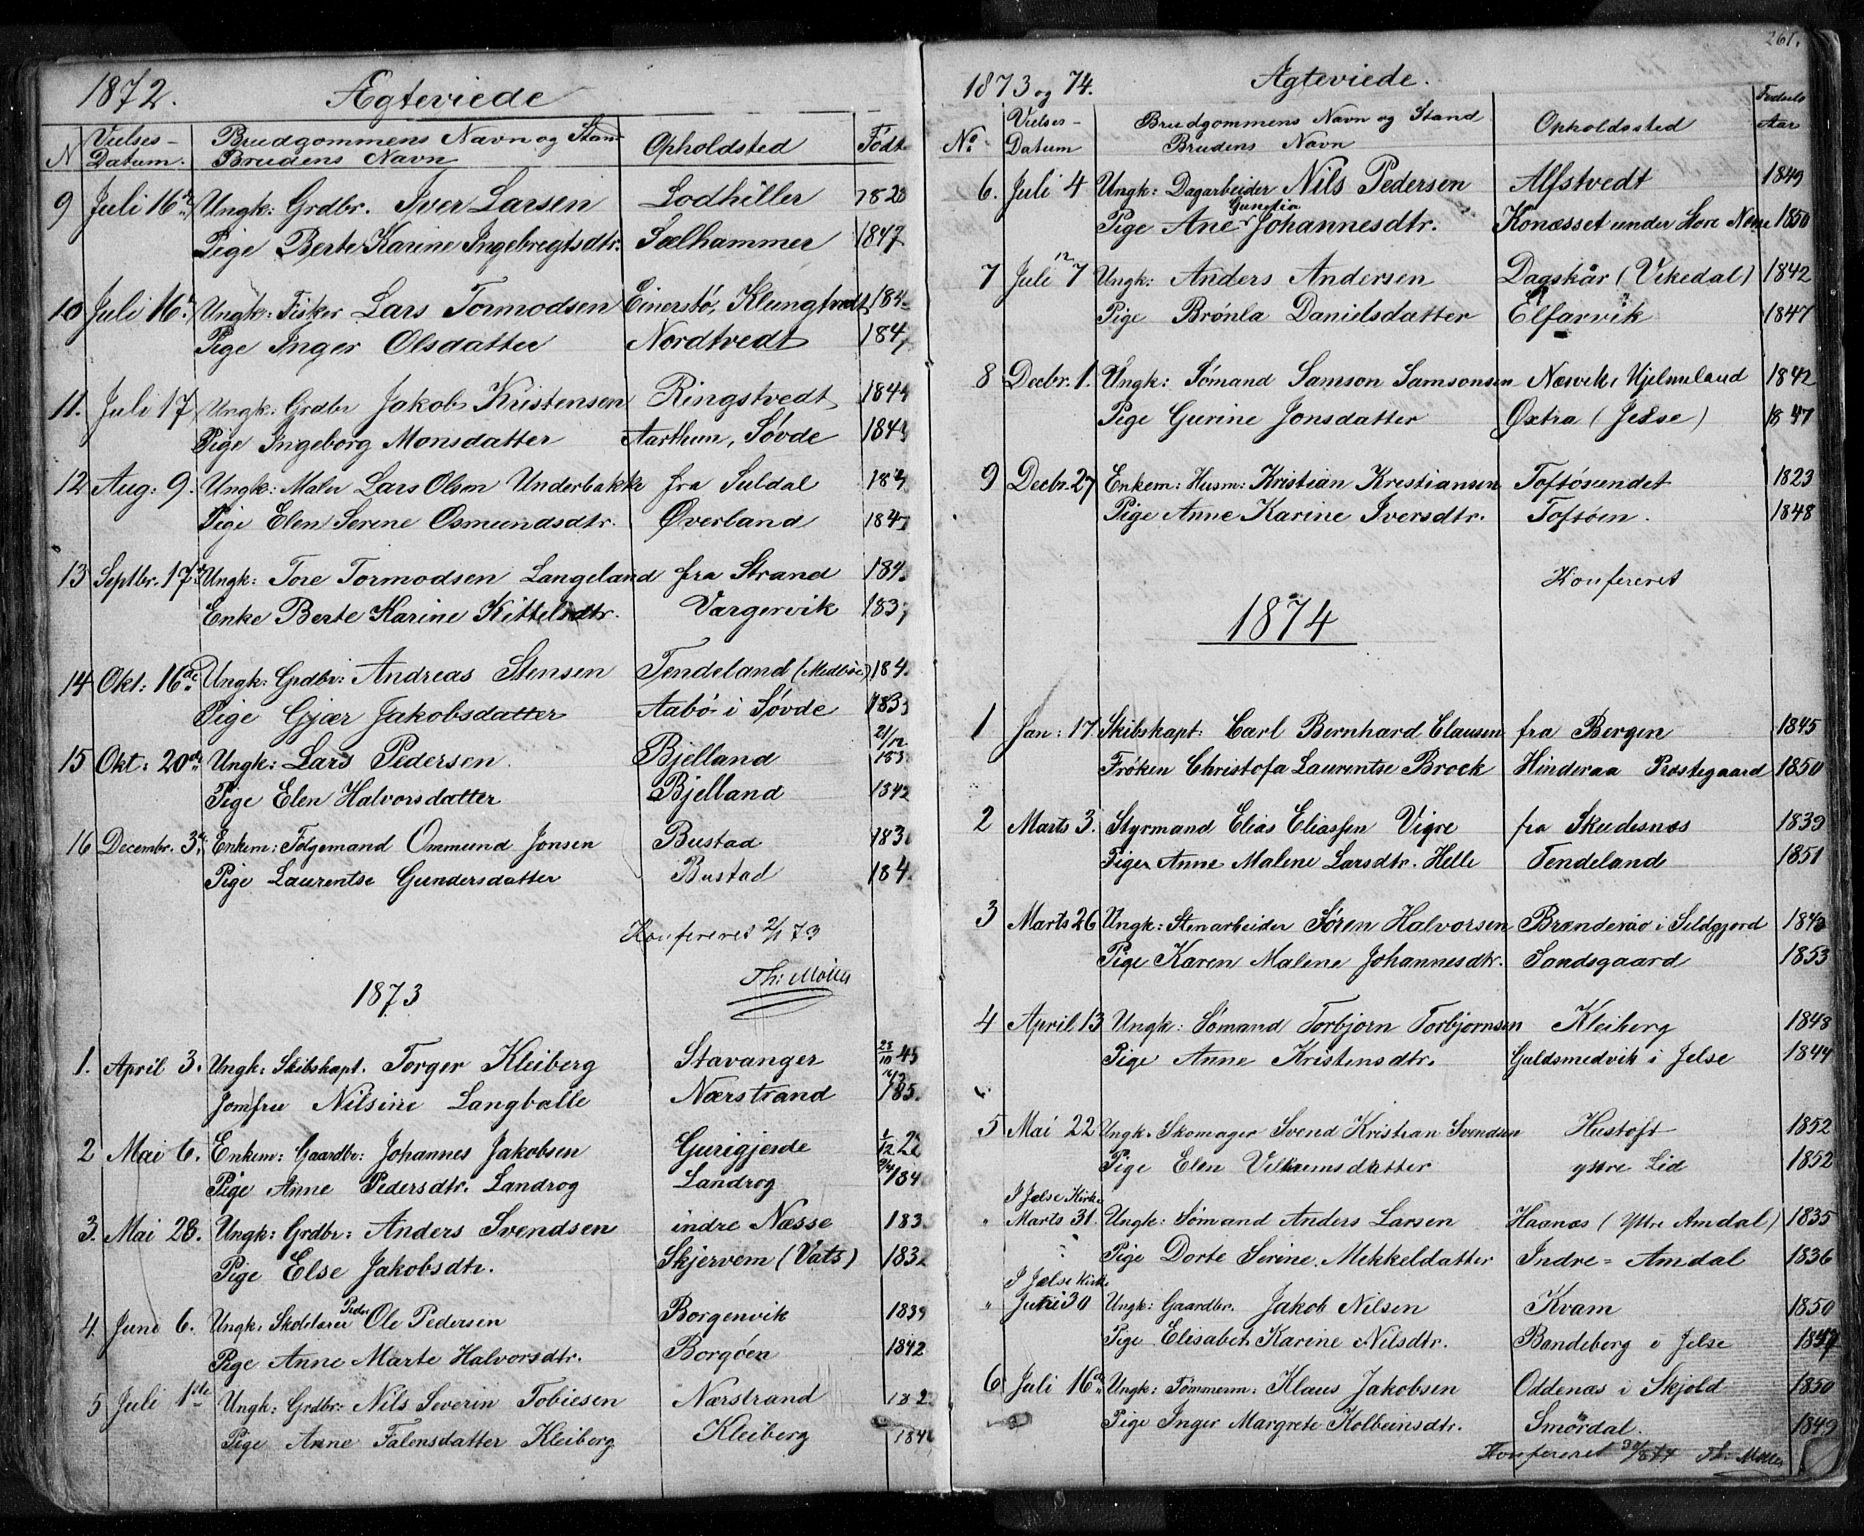 1872. Ægteviede
N Vielses-Datum. Brudgommens Navn og Stand Brudens Navn Opholdsted Født
9 Juli 16de Ungk: Grdbr. Iver Larsen Lodhiller 1820
Pige Berte Karine Ingebregtsdtr. Sælhammer 1847
10 Juli 16de Ungk: Fisker Lars Tormodsen Einerstø, Klungtvedt 18
Pige Inger Olsdatter Nordtvedt 184
11. Juli 17 Ungk: Grdbr Jakob Kristensen Ringstvedt 184
Pige Ingeborg Monsdatter Aarthun, Søvde 184
12 Aug: 9. Ungk: Maler Lars Olsen Underbakke fra Suldal 18
Pige Elen Serine Osmundsdtr. Øverland 184
13 Septbr. 17de Ungk: Tore Tormodsen Langeland fra Strand 184
Enke Berte Karine Kittelsdtr. Vargervik 183
14 Okt: 16de Ungk: Grdbr: Andreas Stensen Tendeland (Medbøe) 184
Pige Gjær Jakobsdatter Aabø i Søvde 183
15 Okt: 20de Ungk: Lars Pedersen. Bjelland 21/12 183
Pige Elen Halvorsdatter Bjelland 1842
16 Decembr. 3de Enkem: Følgemand Ommund Jonsen Bustad 183
Pige Laurentse Gundersdatter Bustad 184
Konfereret 2/1 73
Th: Møller
1873
1. April 3. Ungk: Skibskapt. Torger Kleiberg Stavanger 23/10 45
Jomfru Nilsine Langballe Nærstrand 185
2 Mai 6. Enkem: Gaardbr: Johannes Jakobsen Gurigjerde 1/12 22
Pige Anne Pedersdtr. Landrog Landrog 184
3. Mai 28. Ungk: Grdbr: Anders Svendsen indre Næsse 183
Pige Else Jakobsdtr. Skjervem (Vats) 183
4. Juni 6. Ungk: Skolelærer Peder Ole Pedersen Borgenvik 1839
Pige Anne Marte Halvorsdtr. Borgøen 1842
5 Juli 1ste Ungk: Grdbr: Nils Severin Tobiesen Nærstrand 182
Pige Anne Falensdatter Kleiberg Kleiberg 184
261.
1873 og 74. Ægteviede.
No. Vielses-Datum Brudgommens Navn og Stand Brudens Navn Opholdssted Fødsels Aar
6. Juli 4 Ungk: Dagarbeider Nils Pedersen Alfstvedt 1849
Pige Ane Gunetia Johannesdtr. Konæsset under Store Næsse 1850
7 Juli 7 12 Ungk: Anders Andersen Dagskår (Vikedal) 1842
Pige Brønla Danielsdatter Elfarvik 1847
8 Decbr. 1. Ungk: Sømand Samson Samsonsen Næsvik, Hjelmeland 1842
Pige Gurine Jonsdatter Øxtra (Jelse) 1847
9 Decbr. 27 Enkem: Husm: Kristian Kristiansen Toftøsundet 1823
Pige Anne Karine Iversdtr. Toftøen. 1848
Konfereret
1874
1 Jan: 17. Skibskapt: Carl Bernhard Clausen fra Bergen 1845
Frøken Christofa Laurentse Brock Hinderaa Præstegaard 1850
2 Marts 3. Styrmand Elias Eliassen Vigre fra Skudesnæs 1839
Pige Anne Malene Larsdtr. Helle Tendeland 1851
3 Marts 26 Ungk: Stenarbeider Søren Halvorsen Brandevåo i Sildgjord 1843
Pige Karen Malene Johannesdtr. Sandsgaard 1853
4 April 13 Ungk: Sømand Torbjørn Torbjørnsen Kleiberg 1848
Pige Anne Kristensdtr. Guldsmedvik i Jelse 1844
5 Mai 22 Ungk. Skomager Svend Kristian Svendsen Hustoft 1852
Pige Elen Vilhumsdatter ystre Lid 1852
I Jelse Kirke
" Marts 31 Ungk: Sømand Anders Larsen Haanæs (Yttre Amdal) 1835
Pige Dorte Serine Mekkeldatter Indre = Amdal 1836
I Jelse Kirke
" Juni 30 Ungk: Gaardbr. Jakob Nilsen Kvam 1850
Pige Elisabeth Karine Nilsdtr. Bandeberg i Jelse 1847
6 Juli 16de Ungk: Tømmerm: Klaus Jakobsen Oddenæs i Skjold 1850
Pige Inger Margrete Kolbeinsdtr. Smørdal. 1849
Konfereret 30/8 74 Th. Møller